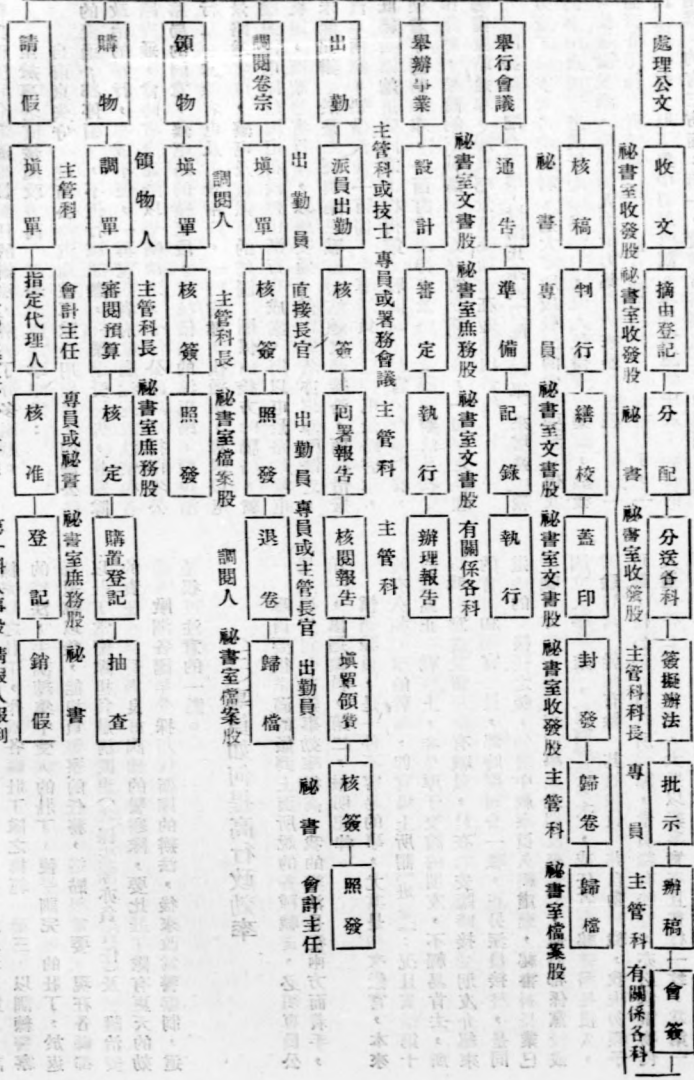 處理公文
收文 摘由登記 分配 分送各科 簽擬辦法 批示 辦稿 會簽
秘書室收發股 秘書室收發股 秘書 秘書室收發股 主管科科長 專員 主管科 有關係各科
核稿 判行 繕校 蓋印 封發 歸卷 歸檔
秘書 專員 秘書室文書股 秘書室文書股 秘書室收發股 主管科 秘書室檔案股
舉行會議
通告 準備 記錄 執行
秘書室文書股 秘書室庶務股 秘書室文書股 有關係各科
舉辦事業
設計 審定 執行 辦理報告
主管科或技士 專員或署務會議 主管科 主管科
出勤
派員出勤 核簽 回署報告 核閱報告 填單領費 核簽 照發
出勤員 直接長官 出勤員 專員或主管長官 出勤員 秘書 會計主任
調閱卷宗
填單 核簽 照發 退卷 歸檔
調閱人 主管科長 秘書室檔案股 調閱人 秘書室檔案股
領物
填單 核簽 照發
領物人 主管科長 秘書室庶務股
購物
調單 審閱預算 核定 購置登記 抽查
主管科 會計主任 專員或秘書 秘書室庶務股 秘書
請假
填單 指定代理人 核准 登記 銷假